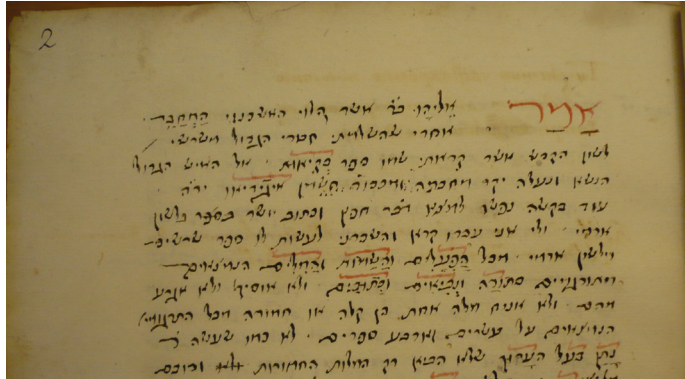 2
אָמַר אֵלִיָהוּ בר אשר הלוי האשכנזי הַמְחַבֵר ·
אחרי שהשלמתי חבורי הגדול משרשי
לשון הקדש אשר קראתי שמו ספר · אל האיש הגדול
הנשא ונעלה יקר מחכמה ומכבוד החשמן איגידיאו ירה
עוד בקשה נפשו למצא דבר חפץ וכתוב יושר בספר בלשון
ארמי · ולי אני עבדו קרא והשכרני לעשות לו ספר שרשים
מלשון ארמי · מכל הַפְעָלִים וְהַשֵמוֹת וְהַמִלִים הנמצאים
מתורגמים בתורה ונביאים וכתובים · ולא אוסיף ולא אגרע
מהם · ולא אניח מלה אחת הן קלה או חמורה מכל התרגומי'
הנמצאים על עשרים וארבע ספרים · לא כמו שעשה ר'
נתן בעל הערוך שלא הביא רק המלות החמורות ורובם